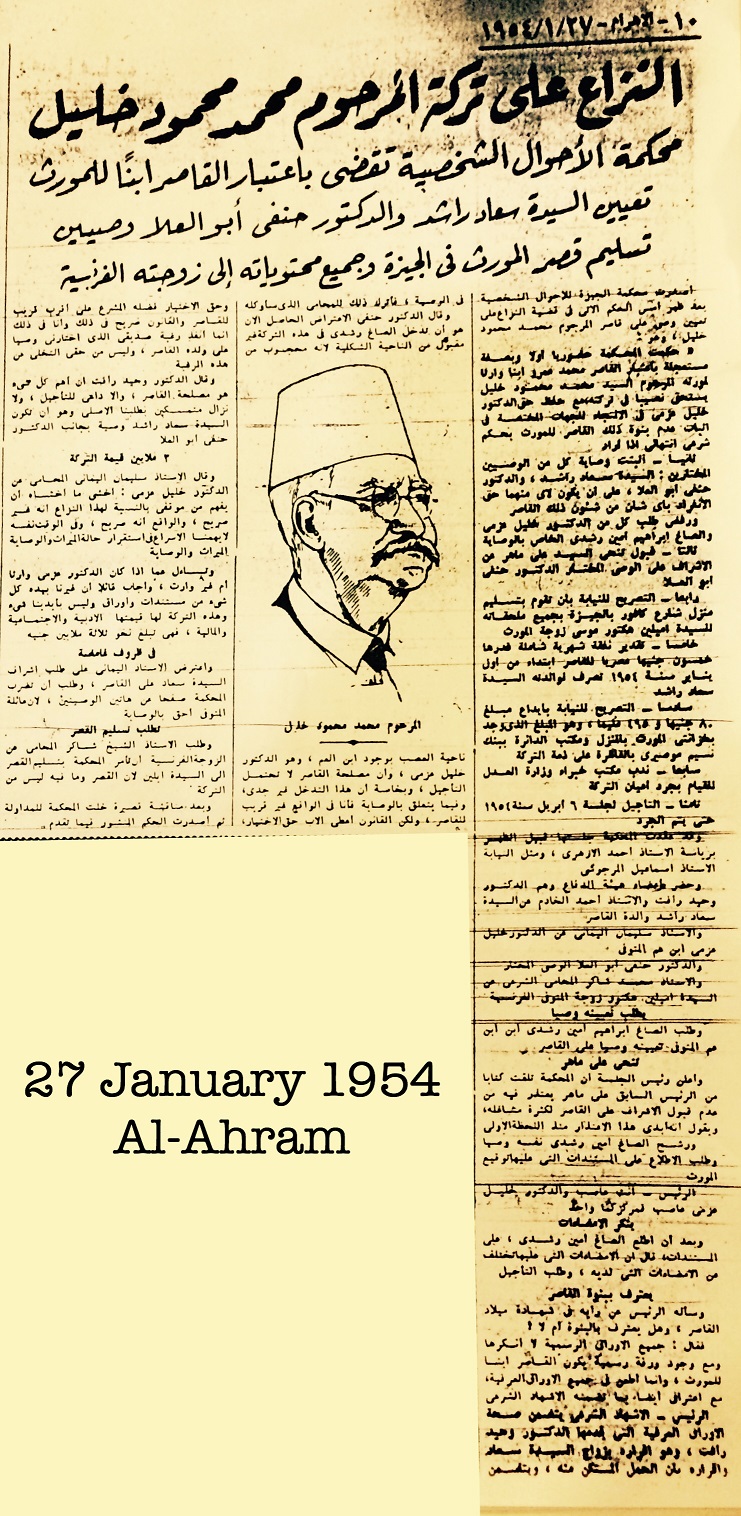 ١٠ - الاهرام - ١٩٥٤/١/٢٧
النزاع على تركة المرحوم محمد محمود خليل
محكمة الأحوال الشخصية تقضى باعتبار القاصر ابنًا للمورث
تعيين السيدة سعاد راشد والدكتور حنفى أبو العلا وصيين
تسليم قصر المورث فى الجيزة وجميع محتوياته إلى زوجته الفرنسية
أصدرت محكمة الجيزة للاحوال الشخصية
بعد ظهر أمس الحكم الآتى فى قضية النزاع على
تعيين وصى على قاصر المرحوم محمد محمود
خليل ، وهو :
« حكمت المحكمة حضوريا أولا وبصفة
مستعجلة باعتبار القاصر محمد عمرو ابنا وارثا
لمورثه المرحوم السيد محمد محمود خليل
يستحق نصيبا فى تركته مع حفظ حق الدكتور
خليل عزمى فى الالتجاء للجهات المختصة فى
اثبات عدم بنوة ذلك القاصر للمورث بحكم
شرعى انتهائى اذا أراد
ثانيا — أثبتت وصاية كل من الوصيين
المختارين : السيدة سعاد راشد ، والدكتور
حنفى أبو العلا ، على أن يكون لأى منهما حق
الانفراد بأى شأن من شئون ذلك القاصر
ورفض طلب كل من الدكتور خليل عزمى
والصاغ ابراهيم أمين رشدى الخاص بالوصاية
ثالثا — قبول تنحى السيد على ماهر عن
الاشراف على الوصى المختار الدكتور حنفى
أبو العلا
رابعا — التصريح للنيابة بأن تقوم بتسليم
منزل شارع كافور بالجيزة بجميع ملحقاته
للسيدة اميلين هكتور موسى زوجة المورث
خامسا — تقدير نفقة شهرية شاملة قدرها
خمسون جنيها مصريا للقاصر ابتداء من أول
يناير سنة ١٩٥٤ تصرف لوالدته السيدة
سعاد راشد
سادسا — التصريح للنيابة بايداع مبلغ
٨٠ جنيها و ٤٦٥ مليما ، وهو المبلغ الذى وجد
بخزانتى المورث بالمنزل ومكتب الدائرة ببنك
نسيم موصيرى بالقاهرة على ذمة التركة
سابعا — ندب مكتب خبراء وزارة العدل
للقيام بجرد أعيان التركة
ثامنا — التأجيل لجلسة ٦ ابريل سنة ١٩٥٤
حتى يتم الجرد
وقد عقدت المحكمة جلستها قبيل الظهر
برياسة الاستاذ أحمد الازهرى ، ومثل النيابة
الاستاذ اسماعيل المرجوشى
وحضر أعضاء هيئة الدفاع وهم الدكتور
وحيد رأفت والاستاذ أحمد الخادم عن السيدة
سعاد راشد والدة القاصر
والاستاذ سليمان اليمانى عن الدكتور خليل
عزمى ابن عم المتوفى
والدكتور حنفى أبو العلا الوصى المختار
والاستاذ محمد شاكر المحامى الشرعى عن
السيدة اميلين هكتور زوجة المتوفى الفرنسية
يطلب تعيينه وصيا
وطلب الصاغ ابراهيم أمين رشدى ابن ابن
عم المتوفى تعيينه وصيا على القاصر
تنحى على ماهر
وأعلن رئيس الجلسة أن المحكمة تلقت كتابا
من الرئيس السابق على ماهر يعتذر فيه من
عدم قبول الاشراف على القاصر لكثرة مشاغله،
ويقول انه أبدى هذا الاعتذار منذ اللحظة الاولى
ورشح الصاغ أمين رشدى نفسه وصيا
وطلب الاطلاع على المستندات التى عليها توقيع
المورث
الرئيس — أنت عاصب والدكتور خليل
عزمى عاصب فمركزكما واحد
ينكر الامضاءات
وبعد أن اطلع الصاغ أمين رشدى ، على
المستندات، قال ان الامضاءات التى عليها تختلف
عن الامضاءات التى لديه ، وطلب التأجيل
يعترف ببنوة القاصر
وسأله الرئيس عن رأيه فى شهادة ميلاد
القاصر ، وهل يعترف بالبنوة أم لا ؟
فقال : جميع الاوراق الرسمية لا أنكرها
ومع وجود ورقة رسمية يكون القاصر ابنا
للمورث ، وانما أطعن فى جميع الاوراق العرفية،
مع اعترافى أيضا بما تضمنه الاشهاد الشرعى
الرئيس — الاشهاد الشرعى يتضمن صحة
الاوراق العرفية التى قدمها الدكتور وحيد
رأفت ، وهو اقراره بزواج السيدة سعاد
واقراره بأن الحمل المستكن منه ، ويتضمن
فى الوصية ، فأترك ذلك للمحامى الذى سأوكله
وقال الدكتور حنفى الاعتراض الحاصل الآن
هو أن تدخل الصاغ رشدى فى هذه التركة غير
مقبول من الناحية الشكلية لانه محجوب من
المرحوم محمد محمود خليل
ناحية العصب بوجود ابن العم ، وهو الدكتور
خليل عزمى ، وأن مصلحة القاصر لا تحتمل
التأجيل ، وبخاصة أن هذا التدخل غير جدى،
وفيما يتعلق بالوصاية فأنا فى الواقع غير قريب
للقاصر، ولكن القانون أعطى الاب حق الاختيار،
وحق الاختيار فضله المشرع على أقرب قريب
للقاصر والقانون صريح فى ذلك وأنا فى ذلك
انما أنفذ رغبة صديقى الذى اختارنى وصيا
على ولده القاصر ، وليس من حقى التخلى عن
هذه الرغبة
وقال الدكتور وحيد رأفت ان أهم كل شىء
هو مصلحة القاصر ، ولا داعى للتأجيل ، ولا
نزال متمسكين بطلبنا الاصلى وهو أن تكون
السيدة سعاد راشد وصية بجانب الدكتور
حنفى أبو العلا
٣ ملايين قيمة التركة
وقال الاستاذ سليمان اليمانى المحامى عن
الدكتور خليل عزمى : أخشى ما أخشاه أن
يفهم من موقفى بالنسبة لهذا النزاع أنه غير
صريح ، والواقع أنه صريح ، وفى الوقت نفسه
لا يهمنا الاسراع فى استقرار حالة الميراث والوصاية
الميراث والوصاية
وتساءل عما اذا كان الدكتور عزمى وارثا
أم غير وارث ، وأجاب قائلا أن غيرنا بهذه كل
شىء من مستندات وأوراق وليس بأيدينا شىء
وهذه التركة لها قيمتها الادبية والاجتماعية
والمالية ، فهى تبلغ نحو ثلاثة ملايين جنيه
فى ظروف غامضة
واعترض الاستاذ اليمانى على طلب اشراف
السيدة سعاد على القاصر ، وطلب أن تضرب
المحكمة صفحا عن هاتين الوصيتين ، لان عائلة
المتوفى أحق بالوصاية
تطلب تسليم القصر
وطلب الاستاذ الشيخ شاكر المحامى عن
الزوجة الفرنسية أن تأمر المحكمة بتسليم القصر
الى السيدة ايلين لان القصر وما فيه ليس من
التركة
وبعد مناقشة قصيرة خلت المحكمة للمداولة
ثم أصدرت الحكم المنشور فيما تقدم
27 January 1954
Al-Ahram